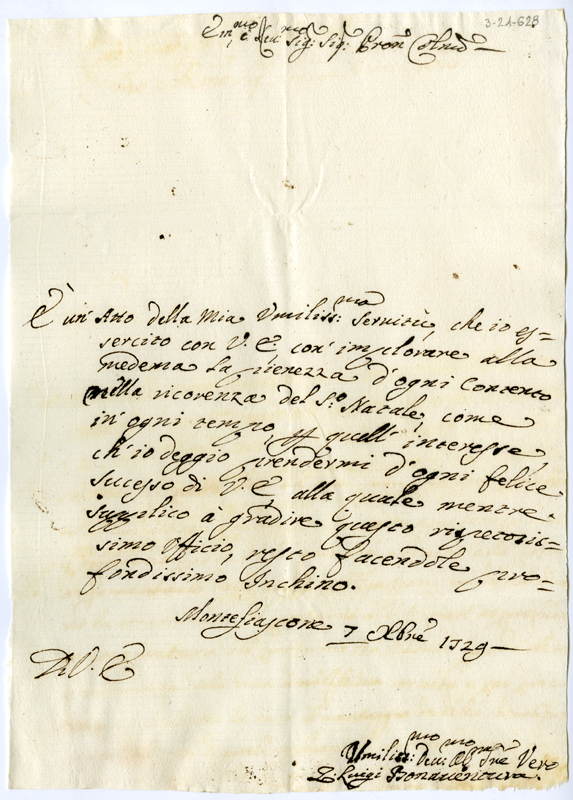 3-21-623
Em:mo e Rev:mo Sig: Sig: Pron Colmo
È un' Atto della Mia Umiliss:ma Servitù, che io es=
sercito con V. E., con' implorare alla
medema la pienezza d'ogni Contento
nella ricorenza del S:o Natale, come
in' ogni tempo, quell' interesse
ch' io deggio prendermi d'ogni felice
sucesso di V. E., alla quale mentre
supplico à gradire questo rispetosis=
simo Uffício, resto facendole pro=
fondissimo Inchino.
Montefiascone 7 Xbre 1729
Di V. E.
Umiliss:mo Dev:mo Obl:mo Sre Vero
Luigi Bonaventura.